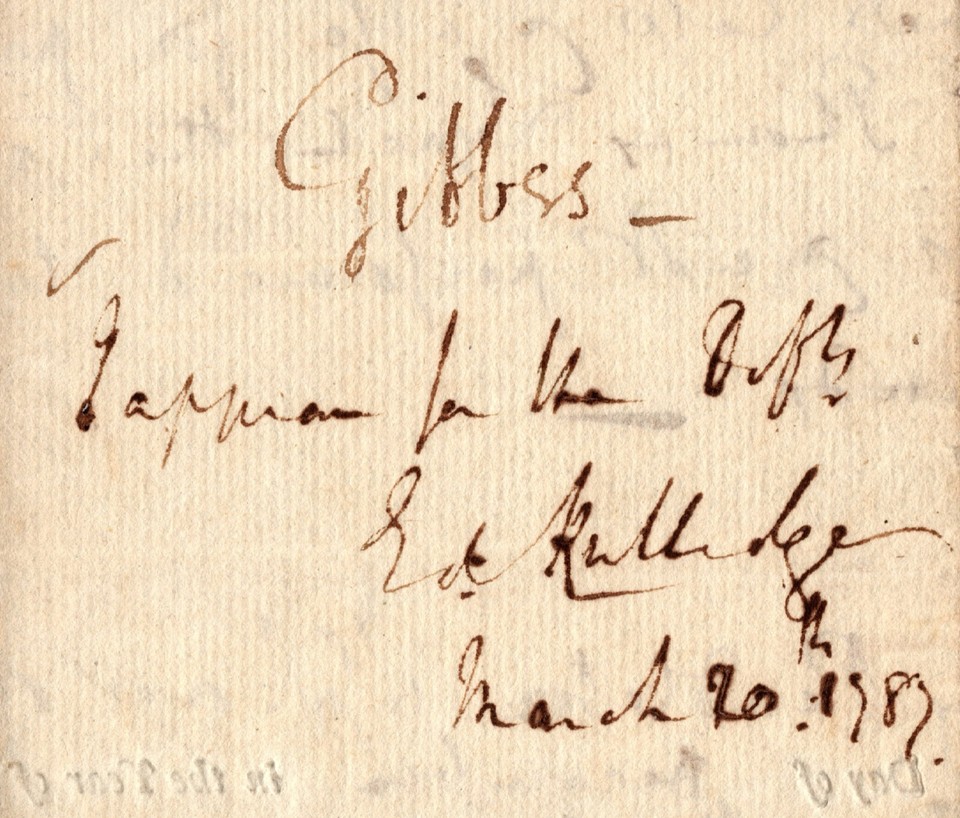 Gibbes —
I appear for the Defts
Ed. Rutledge
March 20th. 1789.
Day of
in the Year of